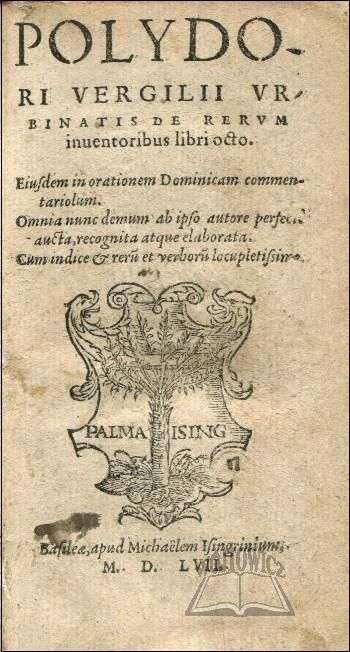 POLYDO-
RI VERGILII VR-
BINATIS DE RERVM
inuentoribus libri octo.
Eiusdem in orationem Dominicam commen-
tariolum.
Omnia nunc demum ab ipso autore perfectè
aucta, recognita atque elaborata.
Cum indice & rerū et verborū locupletissimo.
PALMA ISING
Basileæ, apud Michaëlem Isingrinium,
M. D. LVII.